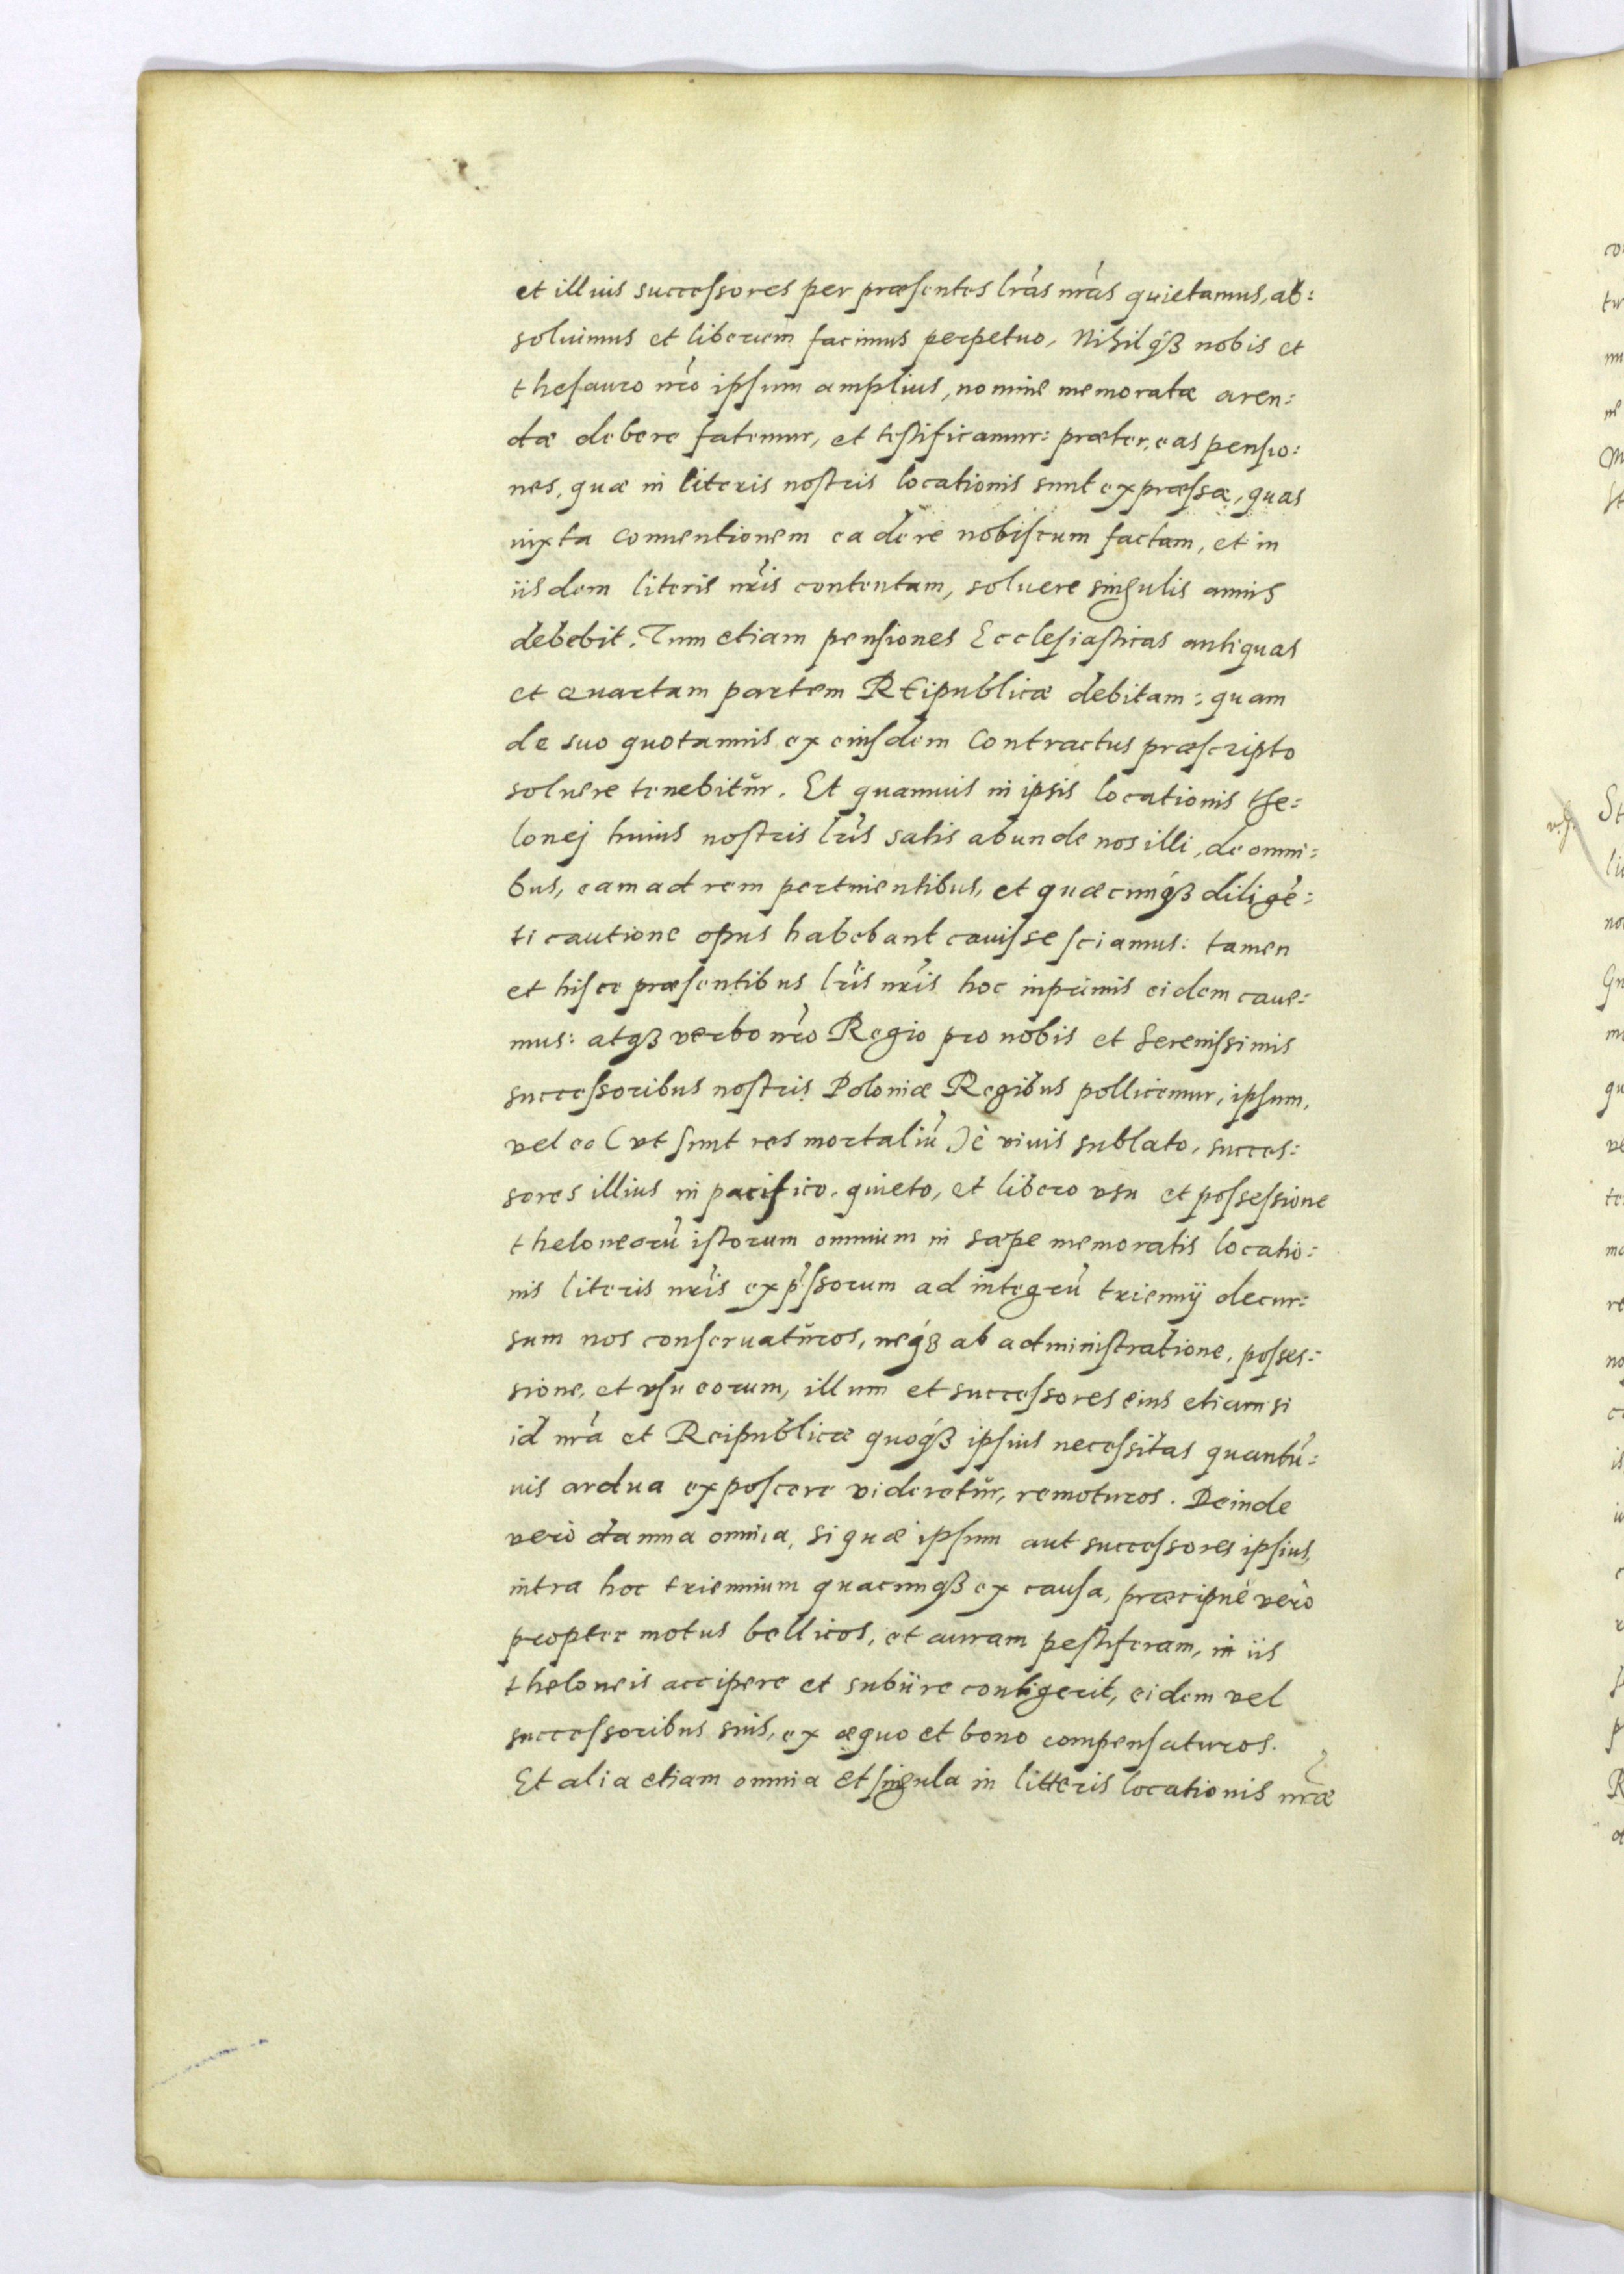 et illius successores per præsentes lr̃as nr̃as quietamus, ab:
soluimus et liberum facimus perpetuo, Nihilq́ꝫ nobis et
thesauro nr̃o ipsum amplius, nomine memoratæ aren:
dæ debere fatemur, et testificamur: præter, eas pensio:
nes, quæ in literis nostris locationis sunt expræssæ, quas
iuxta conuentionem ea de re nobiscum factam, et in
iisdem literis nr̃is contentam, soluere singulis annis
debebit. Tum etiam pensiones Ecclesiasticas antiquas
et quartam partem REipublicæ debitam: quam
de suo quotannis ex eiusdem Contractus præscripto
soluere tenebitur. Et quamuis in ipsis locationis the:
lonej huius nostris lr̃is satis abunde nos illi, de omni:
bus, eam ad rem pertinentibus, et quæcunq́ꝫ diligẽ:
ti cautione opus habebant cauisse sciamus: tamen
et hisce præsentibus lr̃is nr̃is hoc inprimis eidem caue:
mus: atqꝫ verbo nr̃o Regio pro nobis et Serenissimis
successoribus nostris Poloniæ Regibus pollicemur, ipsum,
vel eo (vt sunt res mortaliũ) è viuis sublato, succes:
sores illius in pacifico, quieto, et libero vsu et possessione
theloneorũ istorum omnium in sæpe memoratis locatio:
nis literis nr̃is exp̃ssorum ad integrũ triennij decur:
sum nos conseruaturos, neq́ꝫ ab administratione, posses:
sione, et vsu eorum, illum et successores eius etiam si
id nr̃a et Reipublicæ quoq́ꝫ ipsius necessitas quantũ:
uis ardua exposcere videretur, remoturos. Deinde
verò damna omnia, si quæ ipsum aut successores ipsius,
intra hoc triennium quacunqꝫ ex causa, præcipuè verò
propter motus bellicos, et auram pestiferam, in iis
theloneis accipere et subiire contigerit, eidem vel
successoribus suis, ex æquo et bono compensaturos.
Et alia etiam omnia et singula in litteris locationis nr̃æ